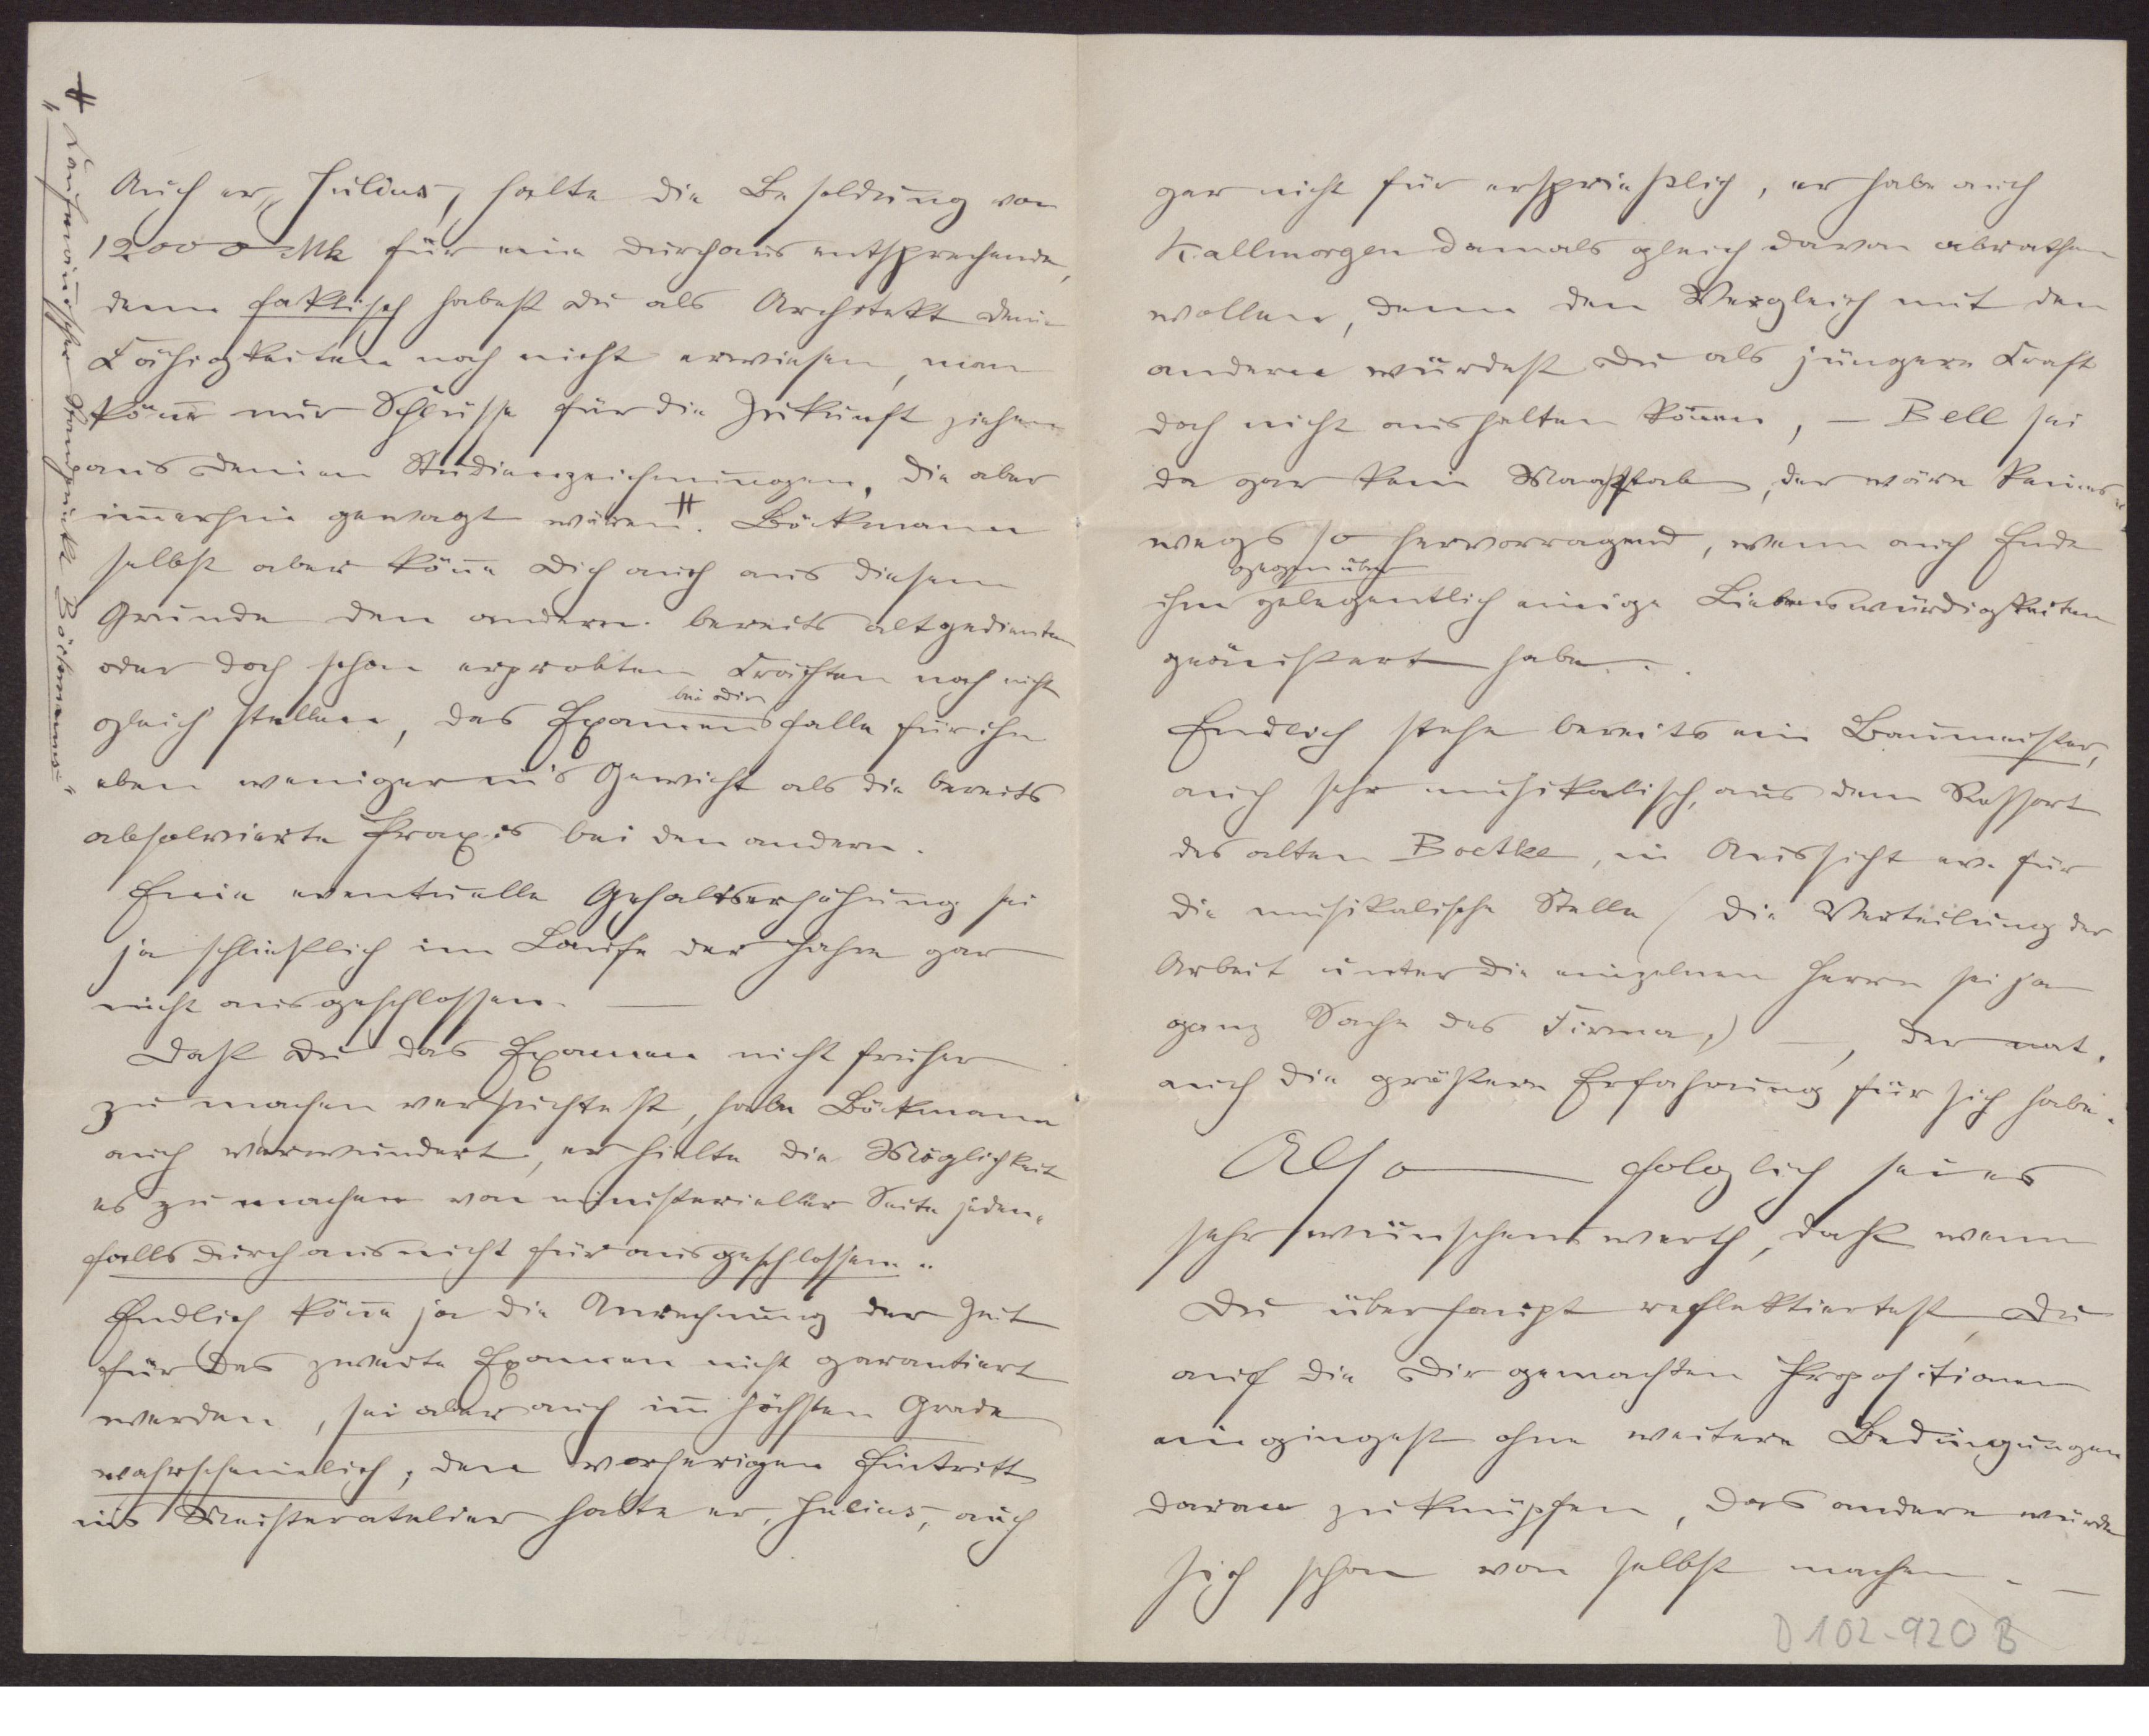 Auch er, Julius, halte die Besoldung von
12.000 Mk für eine durchaus entsprechende,
denn faktisch habest Du als Architekt Deine
Fähigkeiten noch nicht erwiesen, man
könne nur Schlüsse für die Zukunft ziehen
aus Deinen Studienzeichnungen, die aber
im̄erhin gewagt wären #. Böckmann
selbst aber kön̄e Dich auch aus diesem
Grunde den anderen bereits altgedienten
oder doch schon erprobten Kräften noch nicht
gleich stellen, das Examen bei Dir falle für ihn
eben weniger in's Gewicht als die bereits
absolvierte Praxis bei den andern.
Eine eventuelle Gehaltserhöhung sei
ja schließlich im Laufe der Jahre gar
nicht ausgeschlossen. —
Daß Du das Examen nicht früher
zu machen versuchtest, habe Böckmann
auch verwundert, er hielte die Möglichkeit
es zu machen von ministerieller Seite jeden-
falls durchaus nicht für ausgeschlossen.
Endlich kön̄e ja die Anrechnung der Zeit
für das zweite Examen nicht garantiert
werden, sei aber auch im höchsten Grade
wahrscheinlich; den vorherigen Eintritt
ins Meisteratelier halte er, Julius, auch
# „Kaufmännischer Standpunkt Böckmanns"
gar nicht für ersprießlich, er habe auch
Kallmorgen damals gleich davon abrathen
wollen, denn den Vergleich mit den
anderen würdest Du als jüngere Kraft
doch nicht aushalten kön̄en, — Bell sei
da gar kein Maaßstab, der wäre keines-
wegs so hervorragend, wenn auch Ende
ihm gegenüber gelegentlich einige Liebenswürdigkeiten
geäußert habe.
Endlich stehe bereits ein Baumeister,
auch sehr musikalisch, aus dem Ressort
des alten Boetke, in Aussicht ev. für
die musikalische Stelle (die Verteilung der
Arbeit unter die einzelnen Herrn sei ja
ganz Sache der Firma,) —, der nat.
auch die größere Erfahrung für sich habe.
Also — folglich sei es
sehr wünschenswerth, daß wenn
Du überhaupt reflektiertest, Du
auf die Dir gemachten Propositionen
eingingest ohne weitere Bedingungen
daran zu knüpfen, das andere würde
sich schon von selbst machen. —
D 102-920 B